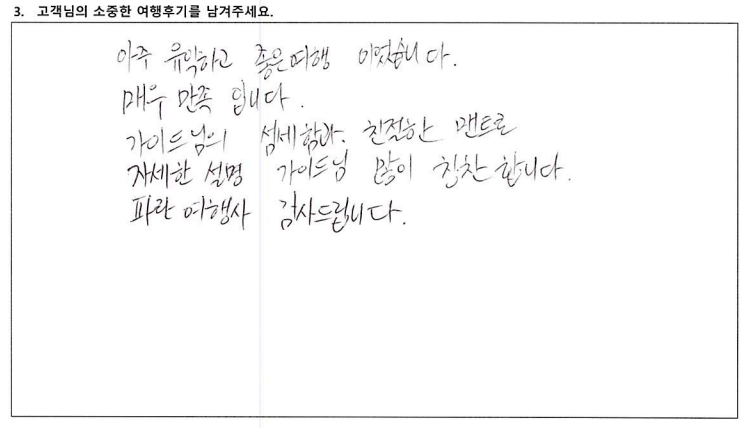 3. 고객님의 소중한 여행후기를 남겨주세요.
아주 유익하고 좋은여행 이었습니다.
매우 만족 입니다.
가이드님의 섬세함과. 친절한 맨트로
자세한 설명 가이드님 많이 칭찬합니다.
파란여행사 감사드립니다.